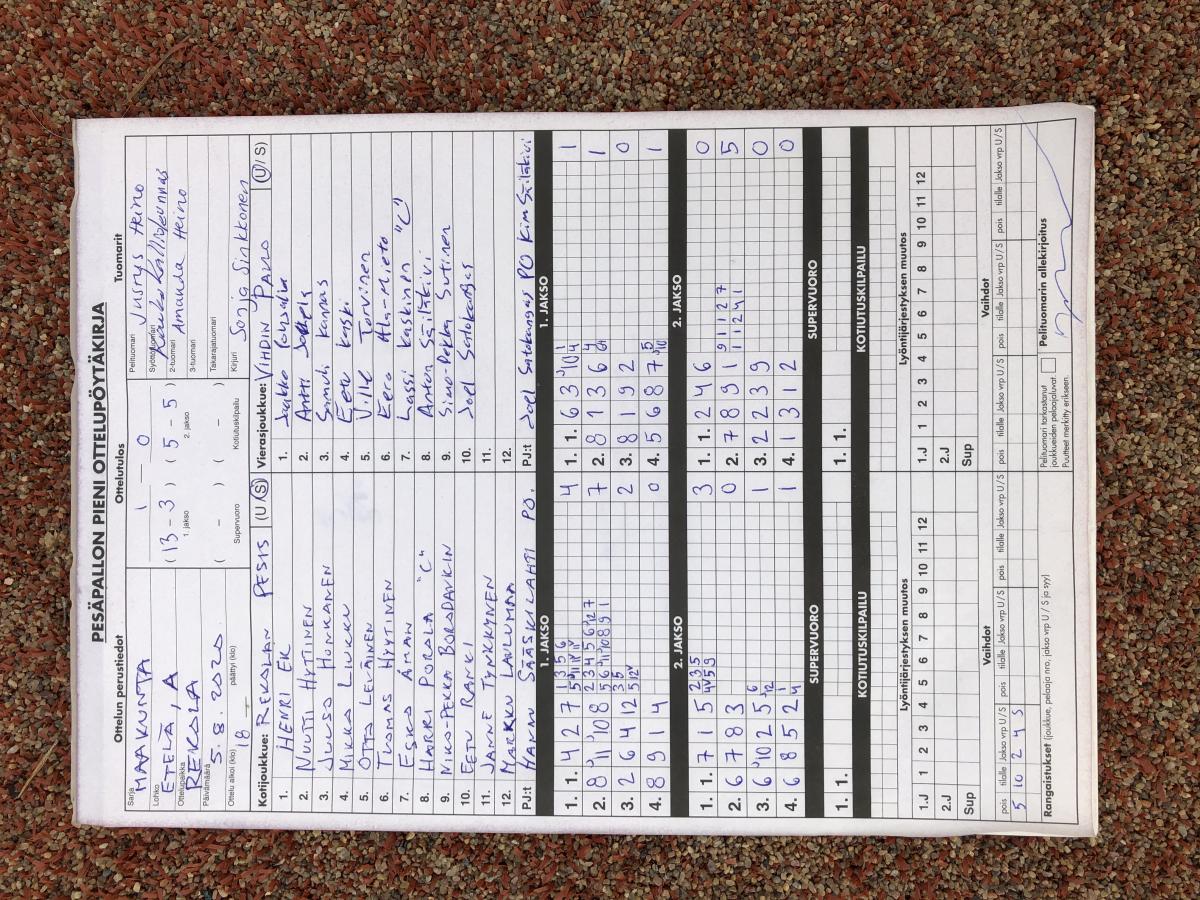 PESÄPALLON PIENI OTTELUPÖYTÄKIRJA
Ottelun perustiedot
Sarja
MAAKUNTA
Lohko
ETELÄ, A
Ottelupaikka
REKOLA
Päivämäärä
5.8.2020
Ottelu alkoi (klo) päättyi (klo)
18
Ottelutulos
1 — 0
(13 - 3) (5 - 5)
1. jakso 2. jakso
( - ) ( - )
Supervuoro Kotiutuskilpailu
Tuomarit
Pelituomari
Heino
Syöttötuomari
2-tuomari
Amanda Heino
3-tuomari
Takarajatuomari
Kirjuri
Sonja Sinkkonen
Kotijoukkue: REKOLAN PESIS (U/S)
1. HENRI EK
2. NUUTTI HYYTINEN
3. JUUSO HONKANEN
4. MIKKO LIUKKU
5. OTTO LEVÄINEN
6. TUOMAS HYYTINEN
7. ESKO ÅMAN
8. HARRI PORALA "C"
9. MIKO-PEKKA BORODAVKIN
10. EETU RANKI
11. JANNE TYNKKYNEN
12. MARKKU LAVLUMAA
PJ:t HANNU SÄÄSKILAHTI PO.
Vierasjoukkue: VIHDIN PALLO (U/S)
1. Jaakko
2. Antti
3. Samuli Kannas
4. Eetu Kaski
5. Ville Torvinen
6. Eero Ala-Mieto
7. Lassi Kaskinen "C"
8. Anton Säiläkivi
9. Simo-Pekka Sutinen
10. Joel Satokangas
11.
12.
PJ:t Joel Satokangas PO Kim Säiläkivi
1. JAKSO
1. 1. 4 2 7 5 4
2. 8 7
3. 2 6 4 12 2
4. 8 9 1 4 0
1. JAKSO
1. 1. 6 3 1
2. 8 1 3 6 1
3. 8 1 9 2 0
4. 5 6 8 7 1
2. JAKSO
1. 1. 7 1 5 3
2. 6 7 8 3 0
3. 6 10 2 5 1
4. 6 8 5 2 1
2. JAKSO
1. 1. 2 4 6 0
2. 7 8 9 1 5
3. 2 2 3 9 0
4. 1 3 1 2 0
SUPERVUORO
1. 1.
SUPERVUORO
1. 1.
KOTIUTUSKILPAILU
KOTIUTUSKILPAILU
Lyöntijärjestyksen muutos
1.J 1 2 3 4 5 6 7 8 9 10 11 12
2.J
Sup
Lyöntijärjestyksen muutos
1.J 1 2 3 4 5 6 7 8 9 10 11 12
2.J
Sup
Vaihdot
pois tilalle Jakso vrp U/S pois tilalle Jakso vrp U/S pois tilalle Jakso vrp U/S
5 10 2 4 S
Vaihdot
pois tilalle Jakso vrp U/S pois tilalle Jakso vrp U/S pois tilalle Jakso vrp U/S
Rangaistukset (joukkue, pelaaja nro, jakso vrp U / S ja syy)
Pelituomari tarkastanut
joukkueiden pelaajaluvat
Puutteet merkitty erikseen.
Pelituomarin allekirjoitus